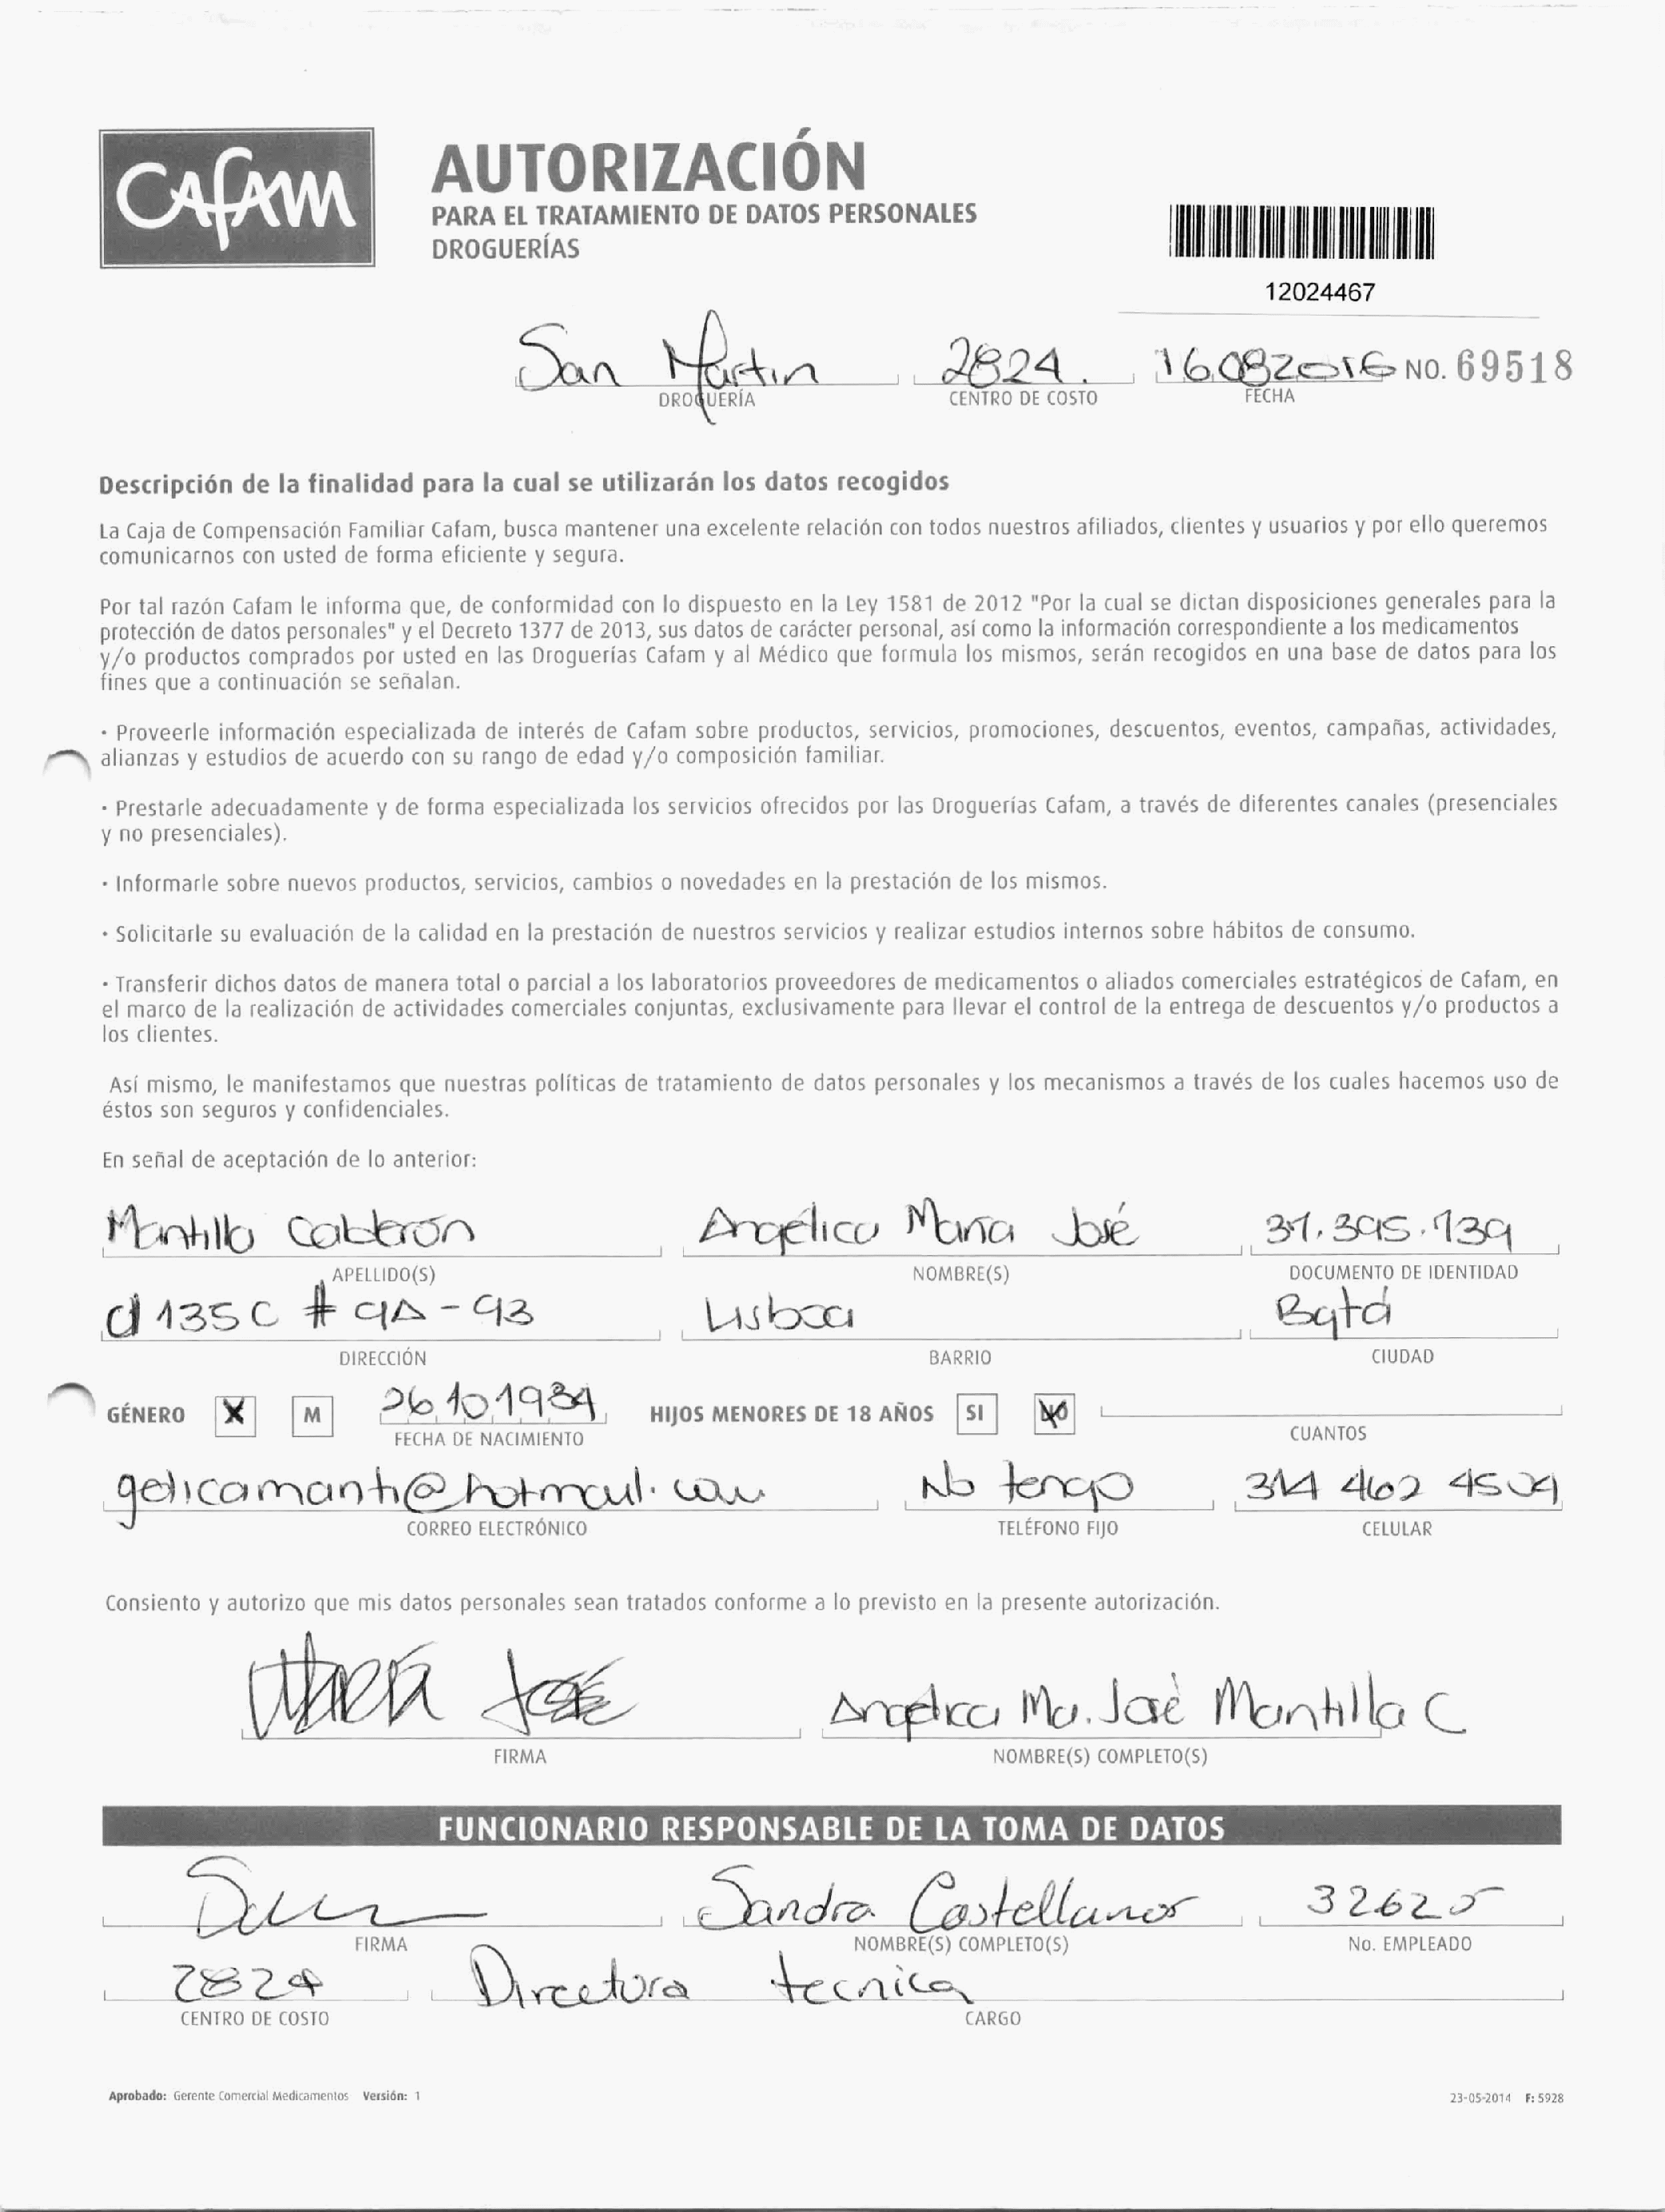 CAFAM
AUTORIZACIÓN
PARA EL TRATAMIENTO DE DATOS PERSONALES
DROGUERÍAS
12024467
San Martin 2824. 16082016 NO. 69518
DROGUERÍA CENTRO DE COSTO FECHA
Descripción de la finalidad para la cual se utilizarán los datos recogidos
La Caja de Compensación Familiar Cafam, busca mantener una excelente relación con todos nuestros afiliados, clientes y usuarios y por ello queremos
comunicarnos con usted de forma eficiente y segura.
Por tal razón Cafam le informa que, de conformidad con lo dispuesto en la Ley 1581 de 2012 "Por la cual se dictan disposiciones generales para la
protección de datos personales" y el Decreto 1377 de 2013, sus datos de carácter personal, así como la información correspondiente a los medicamentos
y/o productos comprados por usted en las Droguerías Cafam y al Médico que formula los mismos, serán recogidos en una base de datos para los
fines que a continuación se señalan.
· Proveerle información especializada de interés de Cafam sobre productos, servicios, promociones, descuentos, eventos, campañas, actividades,
alianzas y estudios de acuerdo con su rango de edad y/o composición familiar.
· Prestarle adecuadamente y de forma especializada los servicios ofrecidos por las Droguerías Cafam, a través de diferentes canales (presenciales
y no presenciales).
· Informarle sobre nuevos productos, servicios, cambios o novedades en la prestación de los mismos.
· Solicitarle su evaluación de la calidad en la prestación de nuestros servicios y realizar estudios internos sobre hábitos de consumo.
· Transferir dichos datos de manera total o parcial a los laboratorios proveedores de medicamentos o aliados comerciales estratégicos de Cafam, en
el marco de la realización de actividades comerciales conjuntas, exclusivamente para llevar el control de la entrega de descuentos y/o productos a
los clientes.
Así mismo, le manifestamos que nuestras políticas de tratamiento de datos personales y los mecanismos a través de los cuales hacemos uso de
éstos son seguros y confidenciales.
En señal de aceptación de lo anterior:
Mantilla Calderón Angélica María José
APELLIDO(S) NOMBRE(S) DOCUMENTO DE IDENTIDAD
cl 135 C # 9A - 93 Lisboa Bgtá
DIRECCIÓN BARRIO CIUDAD
GÉNERO X M 26 10 1984 HIJOS MENORES DE 18 AÑOS SI NO
FECHA DE NACIMIENTO CUANTOS
gelicamanti@hotmail.com No tengo 314 462 4509
CORREO ELECTRÓNICO TELÉFONO FIJO CELULAR
Consiento y autorizo que mis datos personales sean tratados conforme a lo previsto en la presente autorización.
María José Angelica Ma. José Mantilla C
FIRMA NOMBRE(S) COMPLETO(S)
FUNCIONARIO RESPONSABLE DE LA TOMA DE DATOS
Sandra Castellanos 32625
FIRMA NOMBRE(S) COMPLETO(S) No. EMPLEADO
2824 Directora tecnica
CENTRO DE COSTO CARGO
Aprobado: Gerente Comercial Medicamentos Versión: 1 23-05-2014 F: 5928